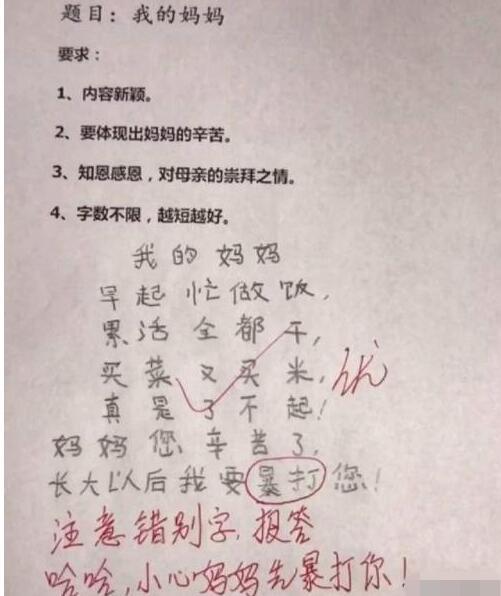 题目：我的妈妈
要求：
1、内容新颖。
2、要体现出妈妈的辛苦。
3、知恩感恩，对母亲的崇拜之情。
4、字数不限，越短越好。
我的妈妈
早起忙做饭，
累活全都干，
买菜又买米，优
真是了不起！
妈妈您辛苦了，
长大以后我要暴打您！
注意错别字，报答
哈哈，小心妈妈先暴打你！